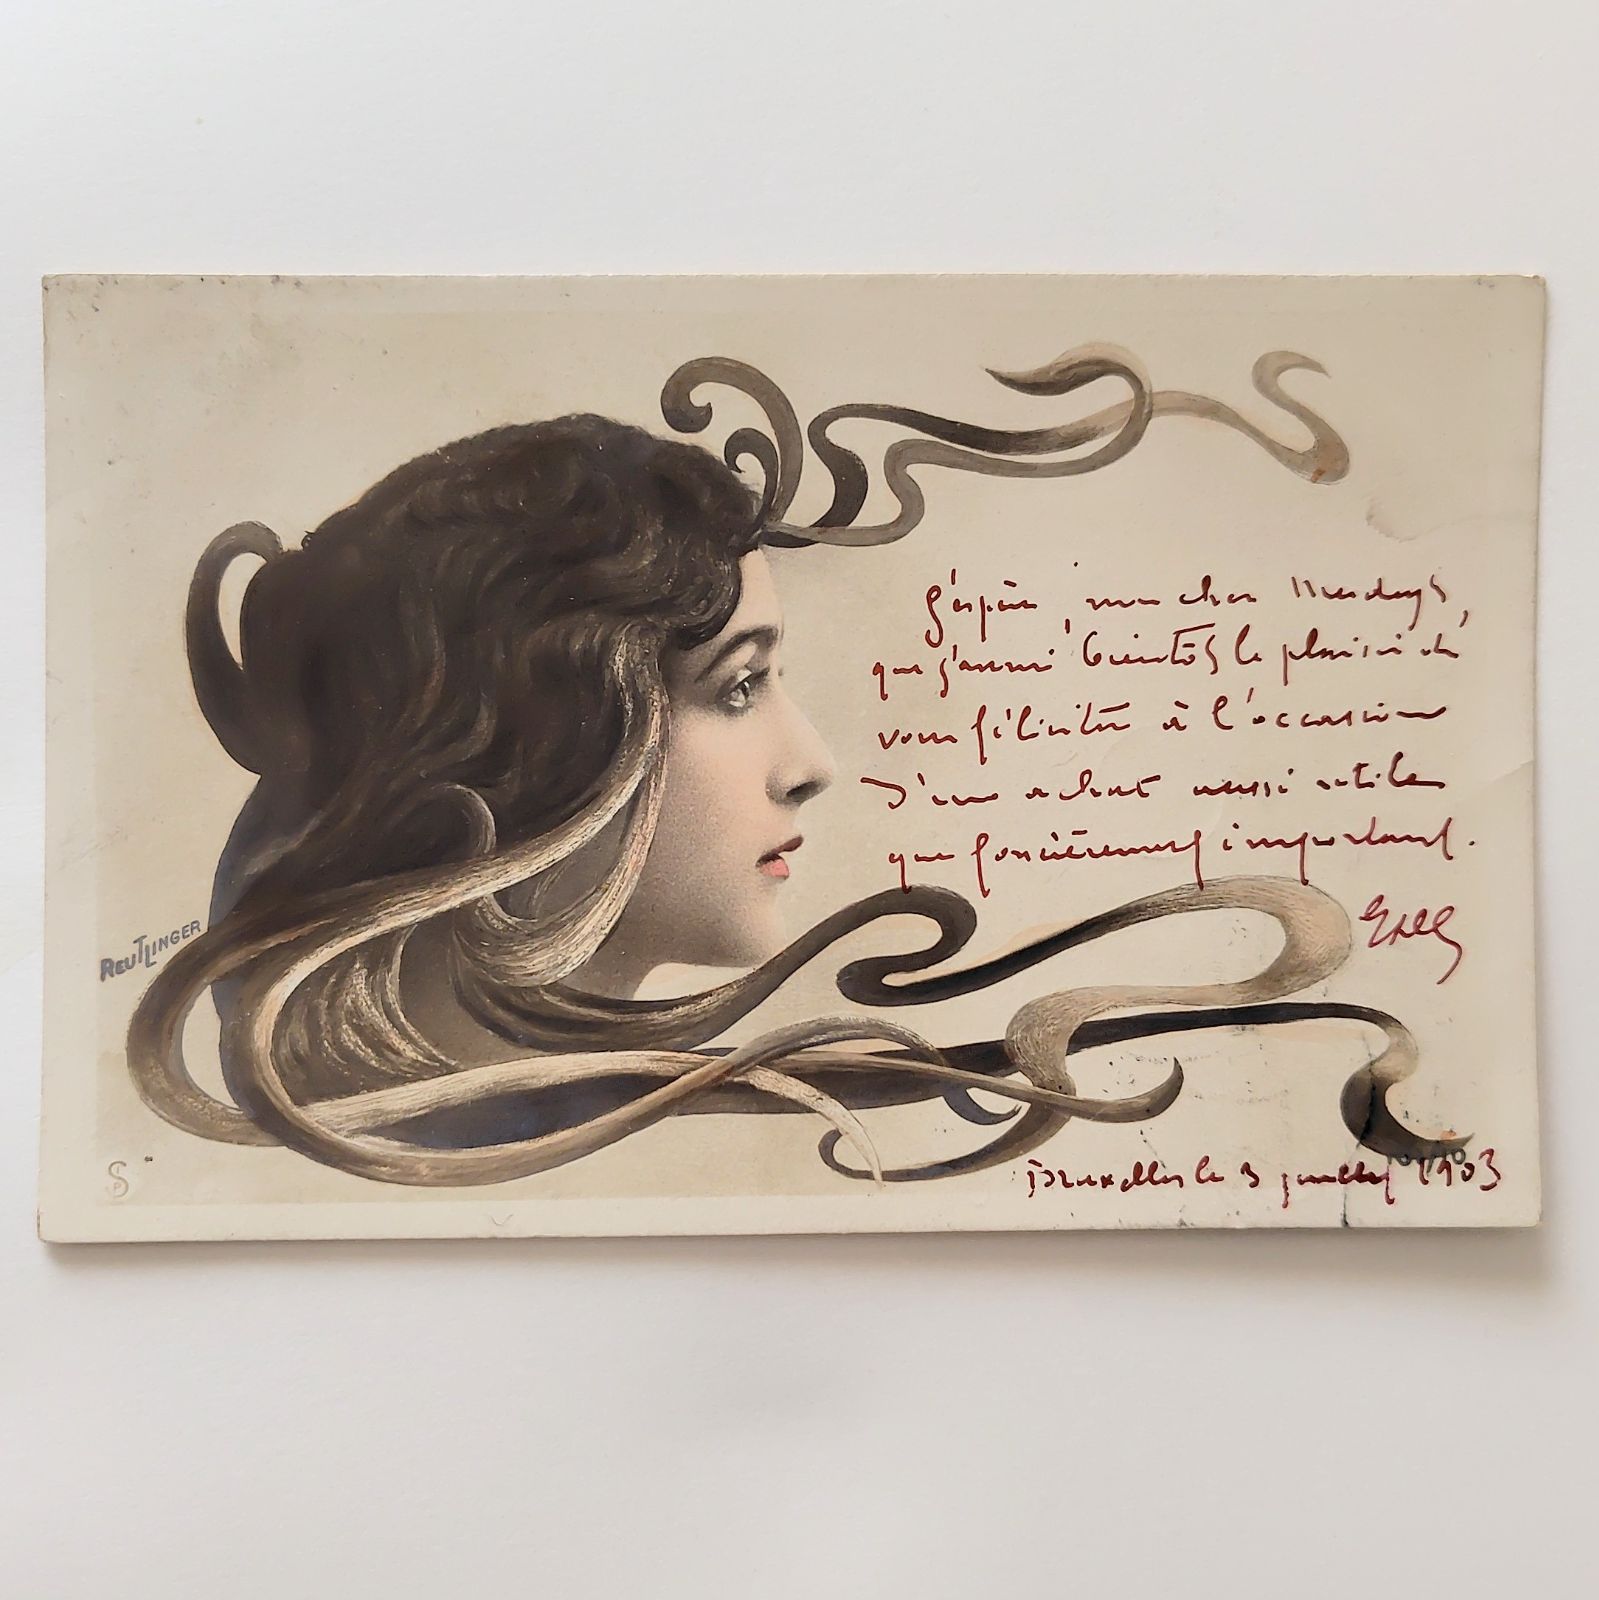 J'espère, mon cher
que j'aurai bientôt le plaisir de
vous féliciter à l'occasion
d'un achat aussi utile
que foncièrement important.
REUTLINGER
Bruxelles le 3 juillet 1903